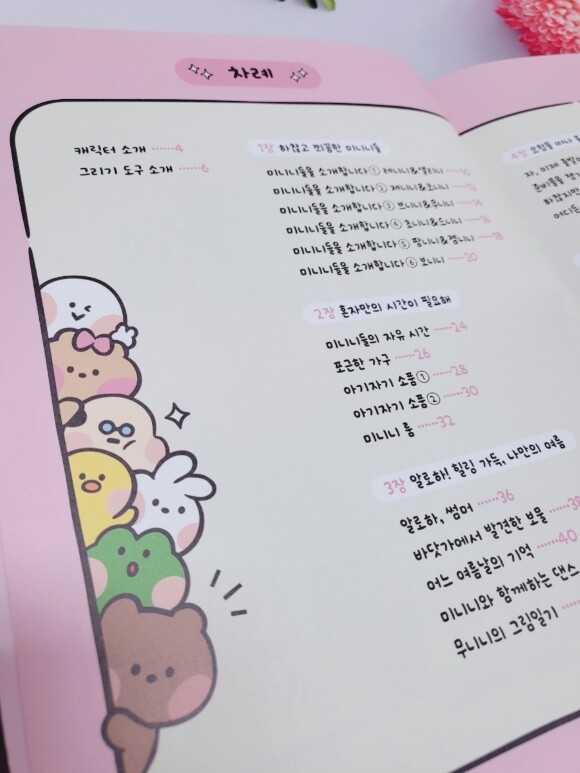 차례
캐릭터 소개 ······4
그리기 도구 소개 ······6
1장 하찮고 쬐끔한 미니니들
미니니들을 소개합니다① 레니니&샐리니 ······10
미니니들을 소개합니다② 제니니&코니니 ······12
미니니들을 소개합니다③ 쁘니니&무니니 ······14
미니니들을 소개합니다④ 초니니&드니니 ······16
미니니들을 소개합니다⑤ 팡니니&쳉니니 ······18
미니니들을 소개합니다⑥ 보니니 ······20
2장 혼자만의 시간이 필요해
미니니들의 자유 시간 ······24
포근한 가구 ······26
아기자기 소품① ······28
아기자기 소품② ······30
미니니 룸 ······32
3장 알로하! 힐링 가득, 나만의 여름
알로하, 썸머 ······36
바닷가에서 발견한 보물 ······38
어느 여름날의 기억 ······40
미니니와 함께하는 댄스
무니니의 그림일기 ······
4장
자, 이제 출발
준비물을 챙
하찮지만
어디든